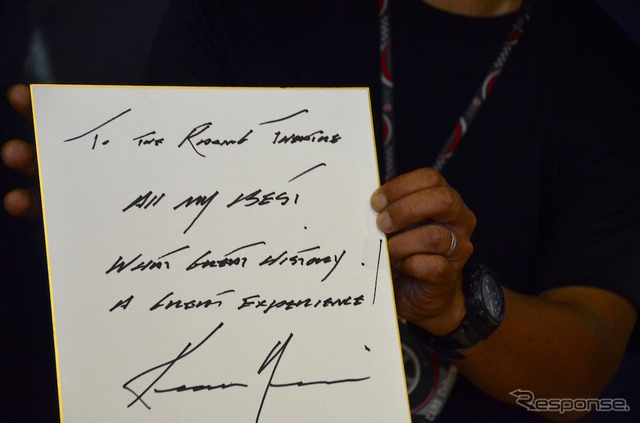 To THE Theatre
All my BEST
WHAT GREAT HISTORY.
A GREAT EXPERIENCE!
Response.